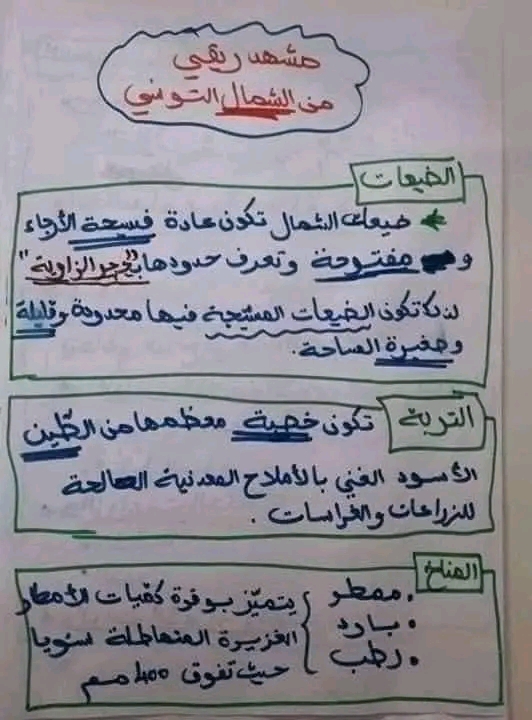 مشهد ريفي
من الشمال التونسي
الضيعات
ضيعات الشمال تكون عادة فسحة الأرجاء
و مفتوحة وتعرف حدودها ب"حجر الزاوية"
لذ تكون الضيعات المسيجة فيها محدودة وقليلة
وصغيرة المساحة.
التربة
تكون خصبة معظمها من الطّين
الأسود الغني بالأملاح المعدنية الصالحة
للزراعات والغراسات.
المناخ
. ممطر
. بارد
. رطب
يتميّز بوفرة كمّيات الأمطار
الغزيرة المتهاطلة سنويا
حيث تفوق 400 مم